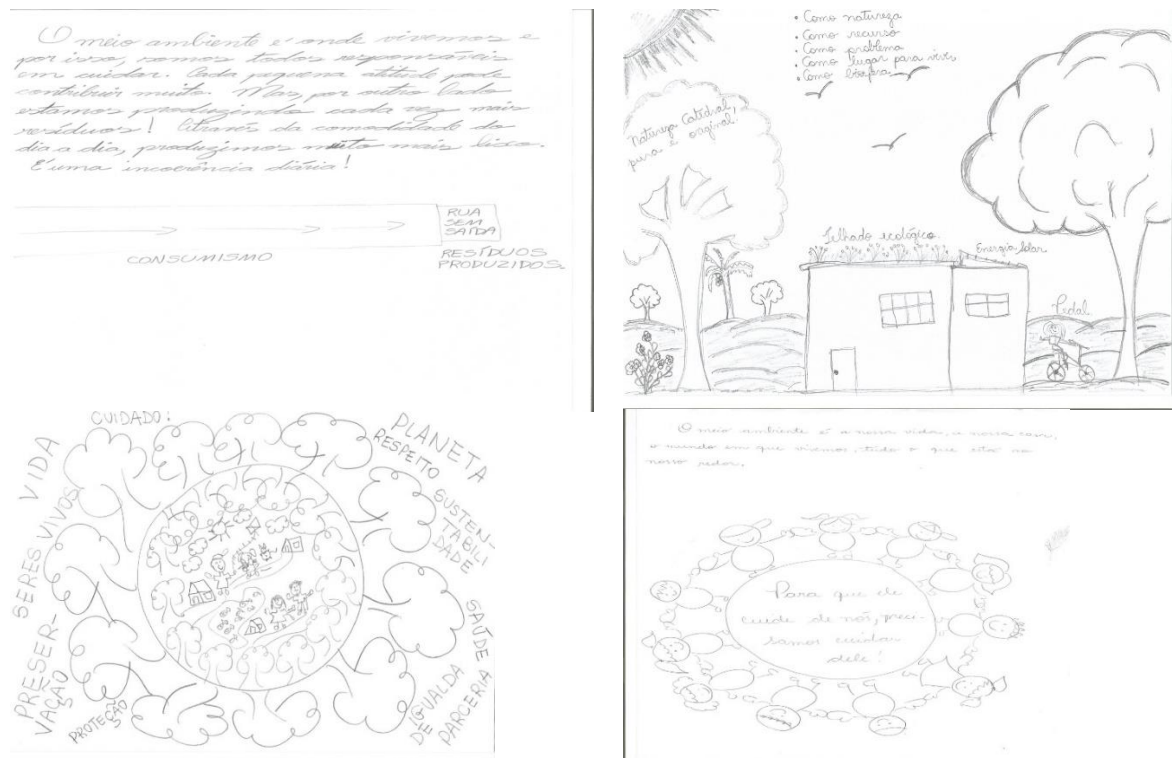 O meio ambiente é onde vivemos e
por isso, somos todos responsáveis
em cuidar. Cada pequena atitude pode
contribuir muito. Mas, por outro lado
estamos produzindo cada vez mais
resíduos! Através da comodidade do
dia a dia, produzimos muito mais lixo.
É uma incoerência diária!
RUA
SEM
SAÍDA
CONSUMISMO
RESÍDUOS
PRODUZIDOS.
• Como natureza
• Como recurso
• Como problema
• Como lugar para viver
• Como biosfera
Natureza Catedral,
pura e original!
Telhado ecológico.
Energia Solar
Pedal
CUIDADO:
PLANETA
RESPEITO
SUSTEN-
TABILI
DADE
SAÚDE
IGUALDA
DE
PARCERIA
VIDA
SERES VIVOS
PRESER-
VAÇÃO
PROTEÇÃO
O meio ambiente é a nossa vida, a nossa casa,
o mundo em que vivemos, tudo o que está ao
nosso redor.
Para que ele
cuide de nós, preci-
samos cuidar
dele!